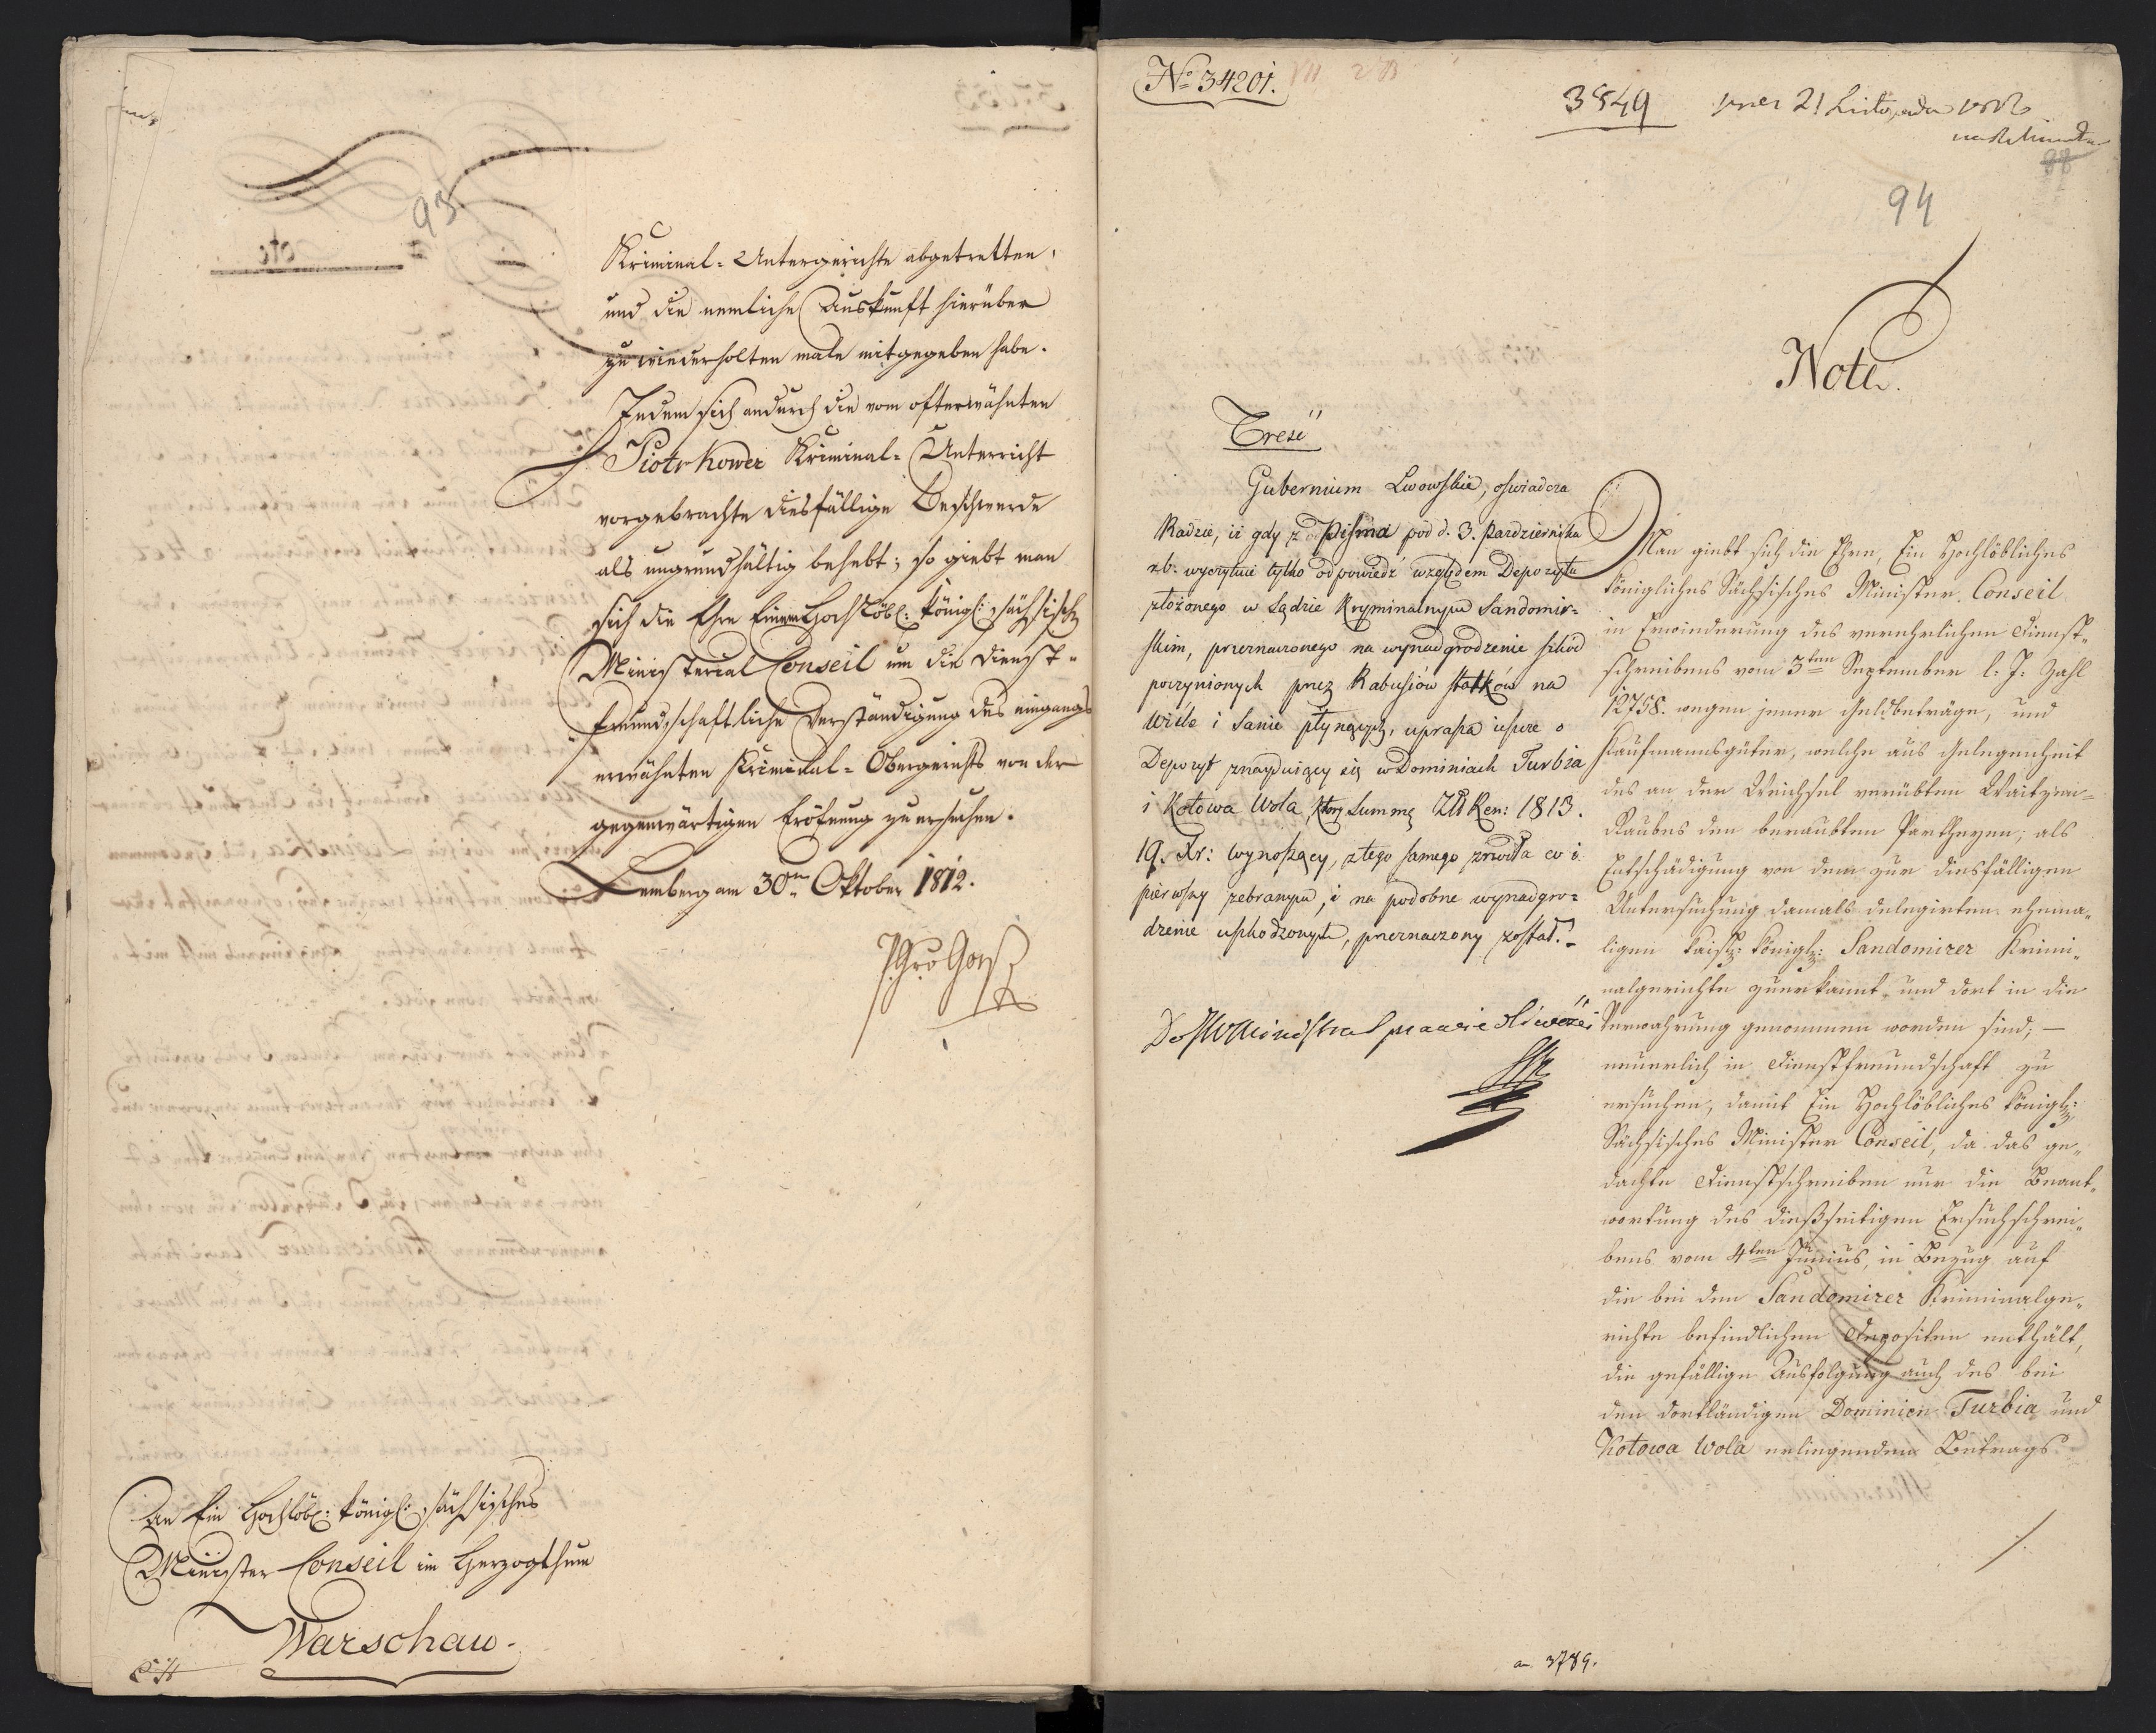 93
Kriminal-Untergerichte abgetretten,
und die nemliche Auskunft hierüber
zu wiederholten male mitgegeben habe.
Indem sich andurch die vom ofterwähnten
Piotrkower Kriminal-Unterricht
vorgebrachte diesfällige Beschwerde
als ungrundhältig behebt; so giebt man
sich die Ehre Einem Hochlöbl: königl: sächsisch
Ministerial Conseil um die dienst-
freundschaftliche Verständigung des eingangs
erwähnten Kriminal-Obergerichts von der
gegenwärtigen Eröfnung zu ersuchen.
Lemberg am 30ten Oktober 1812.
An Ein Hochlöbl: königl: sächsisches
Minister Conseil im Herzogthum
Warschau.
No 34201.
3849 21 Listopada
88
94
Note.
Treść
Gubernium Lwowskie, oswiadcza
Radzie, iż gdy z Pisma pod d. 3. Pazdziernika
r.b. wyczytuie tylko odpowiedź względem Depozytu
złożonego w Sądzie Kryminalnym Sandomir=
skim, przeznaczonego na wynadgrodzenie szkód
poczynionych przez Rabusiów statków na
Wiśle i Sanie płynących, uprasza ieszcze o
Depozyt znayduiący się w Dominiach Turbia
i Kotowa Wola, który Summę ZłR Ken: 1813.
19. Xr: wynoszący, z tego samego zrzodła co i
pierwszy zebranym, i na podobne wynadgro=
dzenie uszkodzonych, przeznaczony został.
Man giebt sich die Ehre, Ein Hochlöbliches
königliches Sächsisches Minister Conseil
in Erwiederung des verehrlichen Dienst„
schreibens vom 3ten September l: J: Zahl
12758. wegen jener Geldbeträge, und
Kaufmannsgüter, welche aus Gelegenheit
des an der Weichsel verübten Waitzen=
Raubes den beraubten Partheyen, als
Entschädigung von dem zur diesfälligen
Untersuchung damals delegirten ehema„
ligen kaiserl: königl: Sandomirer Krimi„
nalgerichte zuerkannt, und dort in die
Verwahrung genommen worden sind, —
neuerlich in Dienstfreundschaft zu
ersuchen, damit Ein Hochlöbliches königl:
Sächsisches Minister Conseil, da das ge„
dachte Dienstschreiben nur die Beant„
wortung des dießseitigen Ersuchschrei„
bens vom 4ten Junius, in Bezug auf
die bei dem Sandomirer Kriminalge„
richte befindlichen Depositen enthält,
die gefällige Ausfolgung auch des bei
den dortländigen Dominien Turbia und
Kotowa Wola erliegenden Betrags
ad 3789.